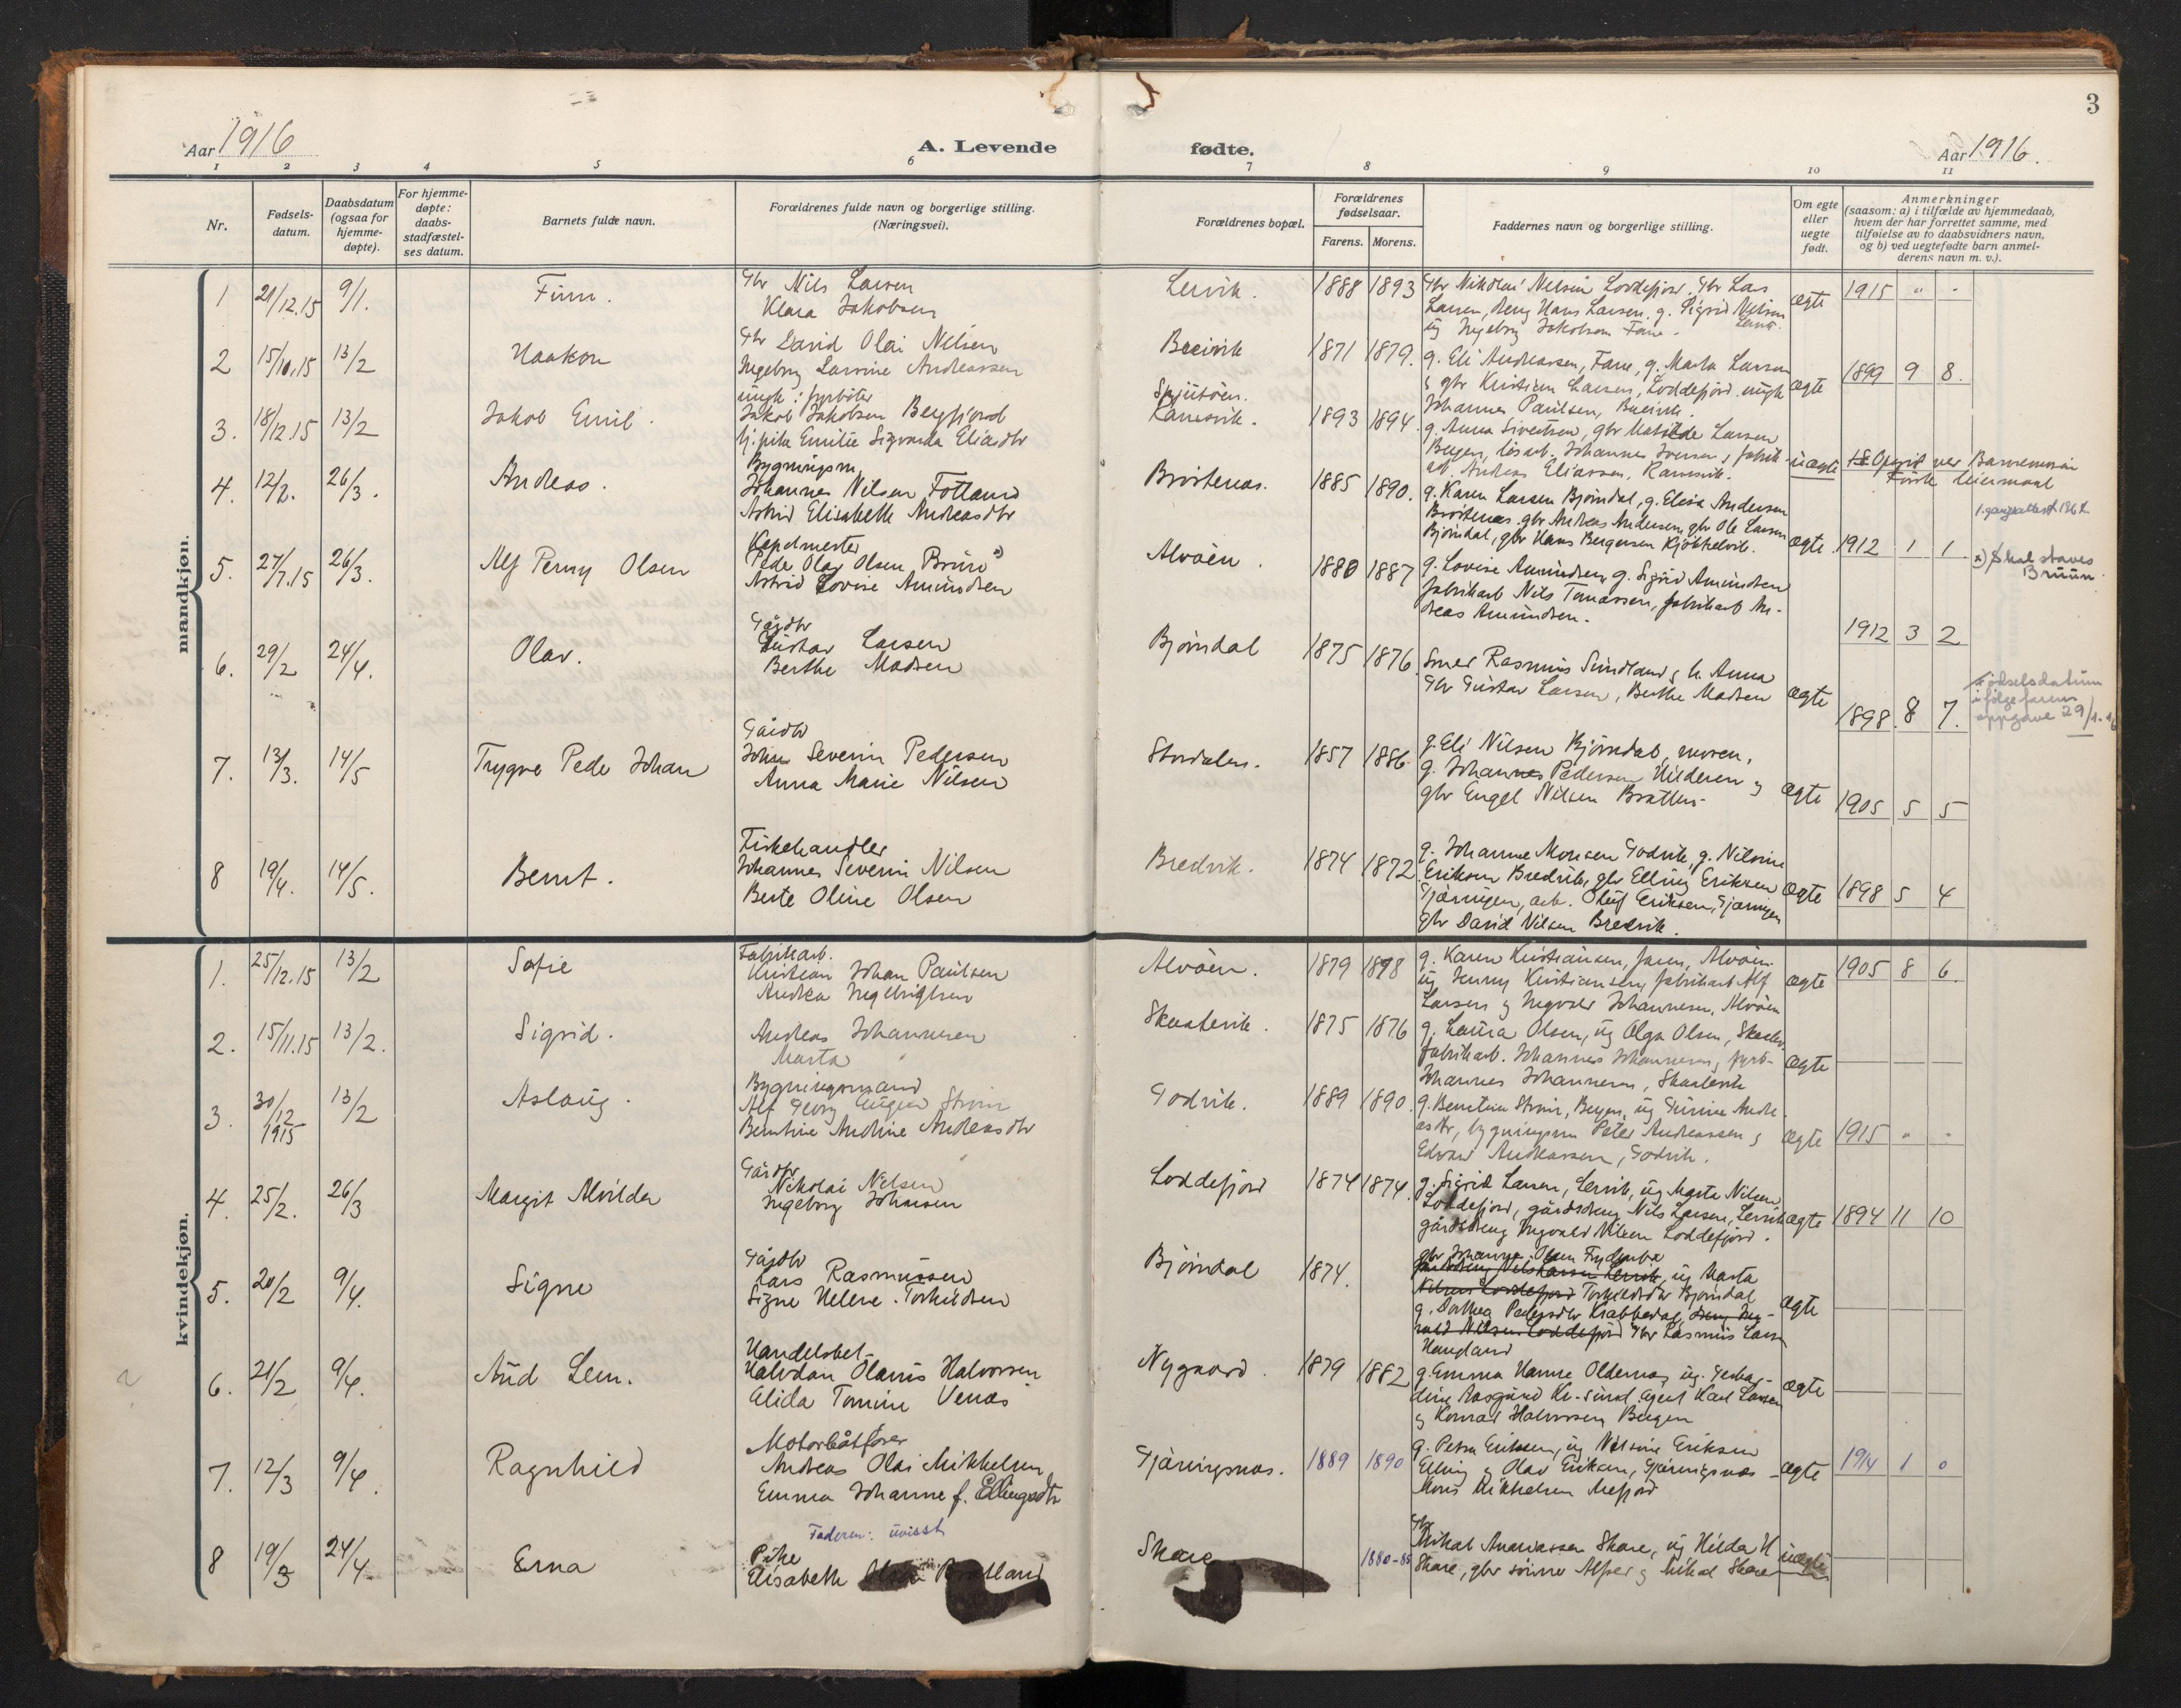 3
Aar 1916
A. Levende
fødte.
Aar 1916.
1 2 3 4 5 6 7 8 9 10 11
Nr.
Fødsels-
datum.
Daabsdatum
(ogsaa for
hjemme-
døpte).
For hjemme-
døpte:
daabs-
stadfæstel-
ses datum.
Barnets fulde navn.
Forældrenes fulde navn og borgerlige stilling.
(Næringsvei).
Forældrenes bopæl.
Forældrenes
fødselsaar.
Farens. Morens.
Faddernes navn og borgerlige stilling.
Om egte
eller
uegte
født.
Anmerkninger
(saasom: a) i tilfælde av hjemmedaab,
hvem der har forrettet samme, med
tilføielse av to daabsvidners navn,
og b) ved uegtefødte barn anmel-
derens navn m. v.).
mandkjøn.
1 21/12.15 9/1. Finn.
Gbr Nils Larsen
Klara Jakobsen
Lervik. 1888 1893
Gbr Nikolai Nelsen Loddefjord, Gbr Lars
Larsen, dreng Hans Larsen, g. Sigrid Nilsen
ug Ingeborg Jakobsen Fane.
ægte 1915 " "
2 15/10.15 13/2 Haakon
Gbr David Olai Nilsen
Ingeborg Larsine Andreassen
Breivik 1871 1879.
g. Eli Andreassen, Fane, g. Marta Larsen
& gbr Kristian Larsen, Loddefjord, ungk
Johannes Paulsen, Breivik.
ægte 1899 9 8.
3. 18/12.15 13/2 Jakob Emil.
ungk: fyrbøter
Jakob Jakobsen Bergfjord
tj. pike Emilie Sigvarda Eliasdtr
Kanesvik. 1893 1894.
g. Anna Sivertsen, gbr Matilde Larsen
Bergen, løsarb. Johannes Iversen & fabrik-
arb. Andreas Eliassen, Kanesvik.
uægte
4. 12/2. 26/3. Andreas.
Bygningsm.
Johannes Nilsen Fotland
Astrid Elisabeth Andreasdtr
Brostenæs. 1885 1890.
g. Karen Larsen Bjørndal, g. Elisa Andersen
Brostenæs, gbr Andreas Andersen, gbr Ole Larsen
Bjørndal, gbr Hans Bergersen Kjøkkelvik.
ægte 1912 1 1
5. 27/7.15 26/3. Alf Perny Olsen
Peder Olai Olsen Brun x)
Astrid Lovise Amundsen
Alvøen. 1880 1887
g. Lovise Amundsen, g. Sigrid Amundsen
fabrikarb Nils Tomassen, fabrikarb An-
dreas Amundsen.
1912 3 2
x) Skal staves
Bruun.
6. 29/2 24/4. Olav.
Gårdbr
Gustav Larsen
Berthe Madsen
Bjørndal 1875 1876.
Smed Rasmus Sundland & h. Anna
Gbr Gustav Larsen, Berthe Madsen
ægte 1898. 8 7.
Fødselsdatum
ifølge farens
oppgave 29/1.16
7. 13/3. 14/5 Trygve Peder Johan
Gårdbr
Johan Severin Pedersen
Anna Marie Nilsen
Stordalen. 1857 1886.
g. Eli Nilsen Bjørndal, moren,
g. Johannes Pedersen Hilderen &
gbr Engel Nilsen Bratten.
ægte 1905 5 5
8 19/4. 14/5. Bernt.
Fiskehandler
Johannes Severin Nilsen
Berte Oline Olsen
Bredvik. 1874 1872
g. Johanne Monsen Godvik, g. Nilsine
Eriksen Bredvik, gbr Elling Eriksen
Gjæringen, arb. Oluf Eriksen, Gjæringen
gbr David Nilsen Bredvik.
ægte 1898 5 4
kvindekjøn.
1. 25/12.15 13/2 Sofie
Fabrikarb.
Kristian Johan Paulsen
Andrea Ingebrigtsen
Alvøen. 1879 1878
g. Karen Kristiansen, faren, Alvøen.
ug Jenny Kristiansen, fabrikarb Alf
Larsen & Ingvald Johannesen, Alvøen
ægte 1905 8 6
2. 15/11.15 13/2. Sigrid.
Andreas Johannesen
Marta
Skaalevik. 1875 1876
g. Laura Olsen, ug Olga Olsen, Skaalev.
fabrikarb. Johannes Johannesen, fyrb-
Johannes Johannesen, Skaalevik
ægte
3. 30/12 1915 13/2 Aslaug.
Bygningsmand
Alf Georg Eugen Strøm
Berntine Andrine Andreasdtr
Godvik. 1889 1890.
g. Berntine Strøm, Bergen, ug Gurine Andre-
asdtr, bygningsm Peter Andreassen &
Edvard Andreassen, Godvik.
ægte 1915 " "
4. 25/2. 26/3 Margit Alvilda
Gårdbr
Nikolai Nelsen
Ingeborg Johnsen
Loddefjord 1874 1874.
g. Sigrid Larsen, Lervik, ug Marta Nilsen
Loddefjord, gårdsdreng Nils Larsen, Lervik
gårdsdreng Ingvald Nilsen Loddefjord.
ægte 1894 11 10
5. 20/2 9/4. Signe
Gårdbr
Lars Rasmussen
Signe Helene Torkildsen
Bjørndal 1874.
gbr Johannes Olsen Frydenbø
gårdsdreng Nils Larsen Lervik, ug Marta
Nilsen Loddefjord Torkildsdtr Bjørndal
g. Dorthea Pedersdtr Krabbedal, dreng Ing-
vald Nilsen Loddefjord Gbr Rasmus Larsen
Haugland
ægte
6. 21/2 9/4. Aud Lem.
Handelsbet.
Halvdan Olanis Halvorsen
Alida Tomine Venås
Nygaard. 1879 1882
g. Emma Hanne Oldernæs, ug. Gerhar-
dine Aasgaard Kr-sund, agent Karl Larsen
& Konrad Halvorsen Bergen
ægte
7. 12/3 9/4. Ragnhild
Motorbåtfører
Andreas Olai Mikkelsen
Emma Johanne f. Ellingsdtr
Gjæringsnæs. 1889 1890
g. Petra Eriksen, ug Nilsine Eriksen
Elling & Olav Eriksen, Gjæringsnæs
Mons Mikkelsen Alefjord
ægte 1914 1 0
8 19/3 24/4 Erna
Faderen: uvisst
Pike
Elisabeth Olsen Bratland
Skare 1880-85
Gbr
Mikal Andreassen Skare, ug Hilda H
Skare, gbr sønner Alfred & Mikal Skare
uægte